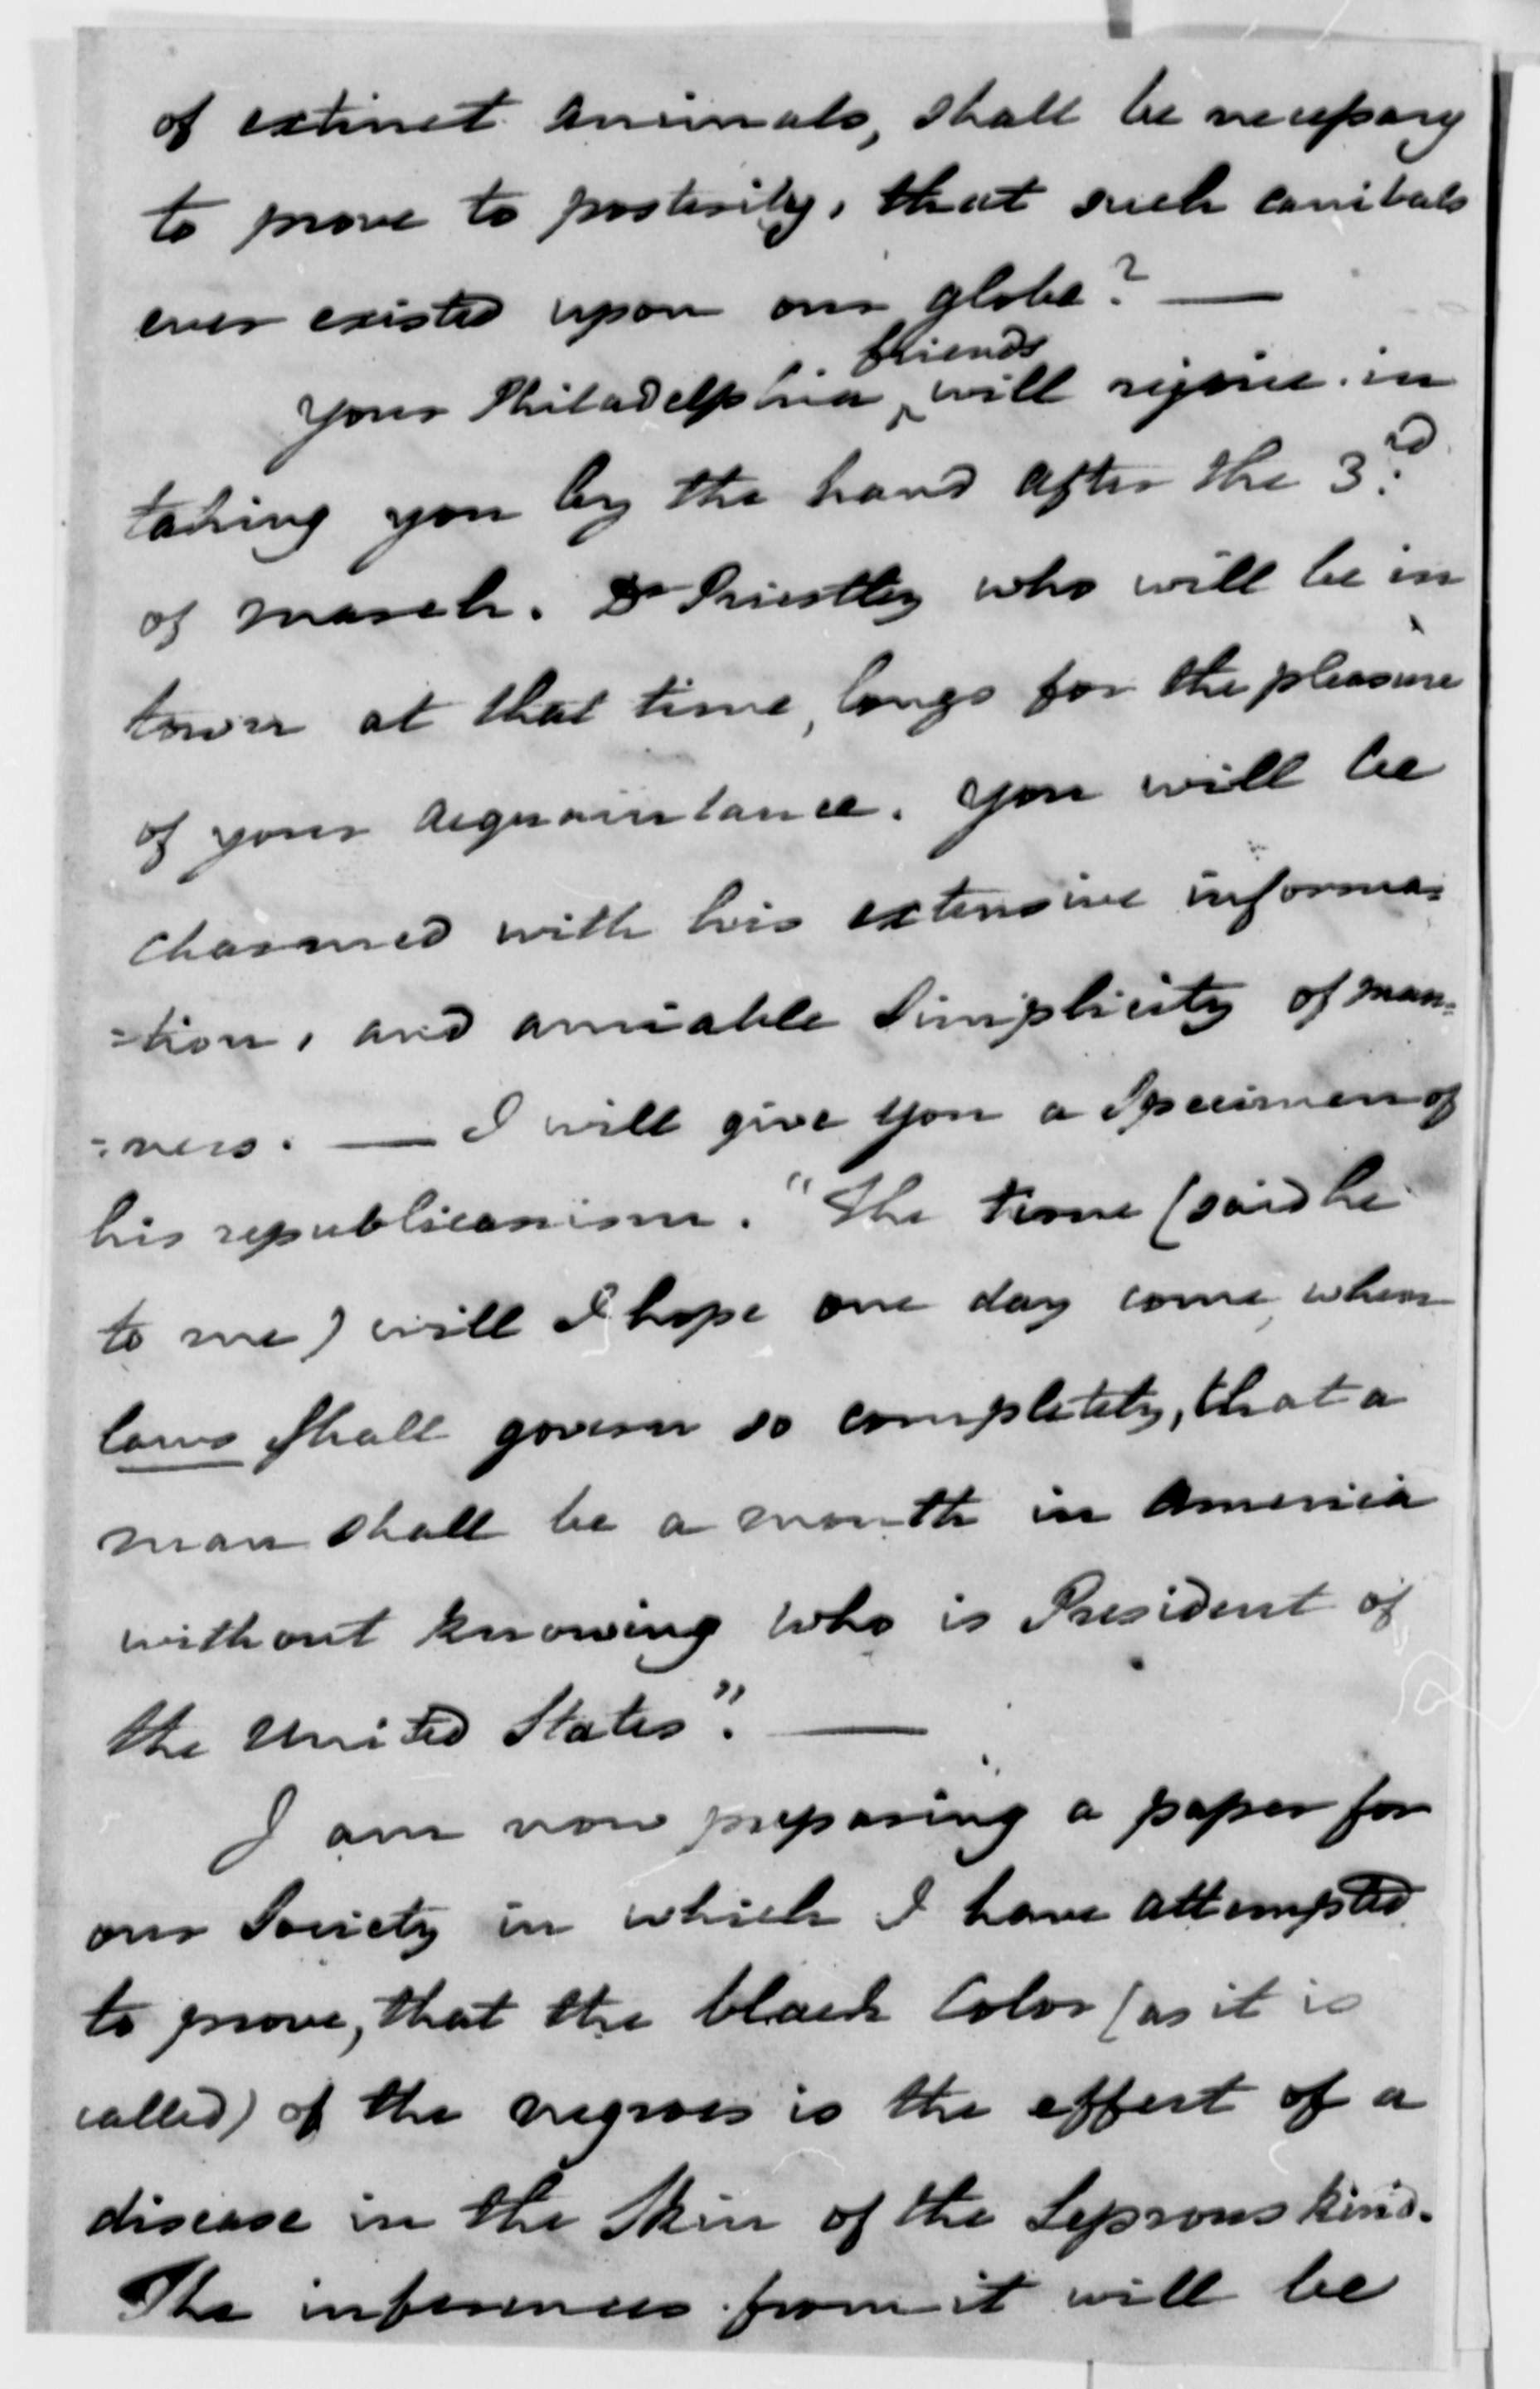 of extinct animals, shall be necessary
to prove to posterity, that such canibals
ever existed upon our globe? —
friends
Your Philadelphia ‸ will rejoice in
taking you by the hand after the 3rd
of march. Dr Priestley who will be in
town at that time, longs for the pleasure
of your acquaintance. You will be
charmed with his extensive informa=
=tion, and amiable simplicity of man=
=ners. — I will give you a Specimen of
his republicanism. "The time (said he
to me) will I hope one day come, when
laws shall govern so completely, that a
man shall be a month in America
without knowing who is President of
the United States". —
I am now preparing a paper for
our Society in which I have attempted
to prove, that the black Color (as it is
called) of the negroes is the effect of a
disease in the Skin of the Leprous kind.
The inferences from it will be